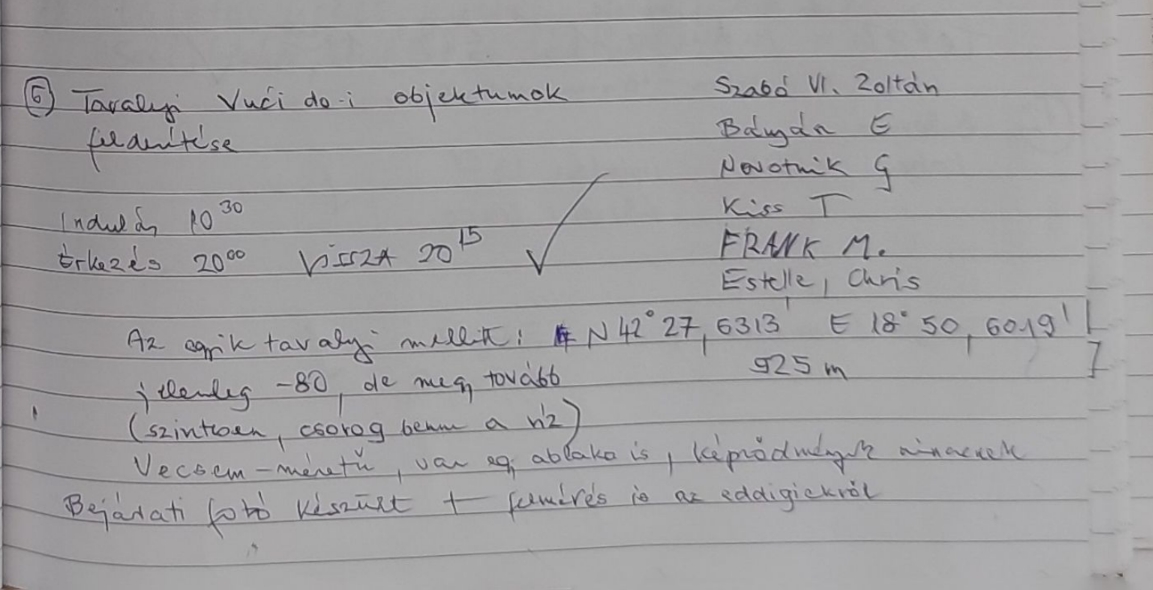 ⑥ Tavalyi Vuči do-i objektumok
felderítése
Szabó Vl. Zoltán
Bátyán E
Novotnik G
Kiss T
FRANK M.
Estelle, Chris
Indulás 10³⁰
Érkezés 20⁰⁰ VISSZA 20¹⁵ ✓
Az egyik tavalyi mellett: N 42° 27,6313' E 18° 50,6019' !
925 m
jelenleg -80, de megy tovább
(szintben, csorog benne a víz)
Vecsem-méretű, van egy ablaka is, képződmények nincsenek
Bejárati fotó készült + felmérés is az eddigiekről